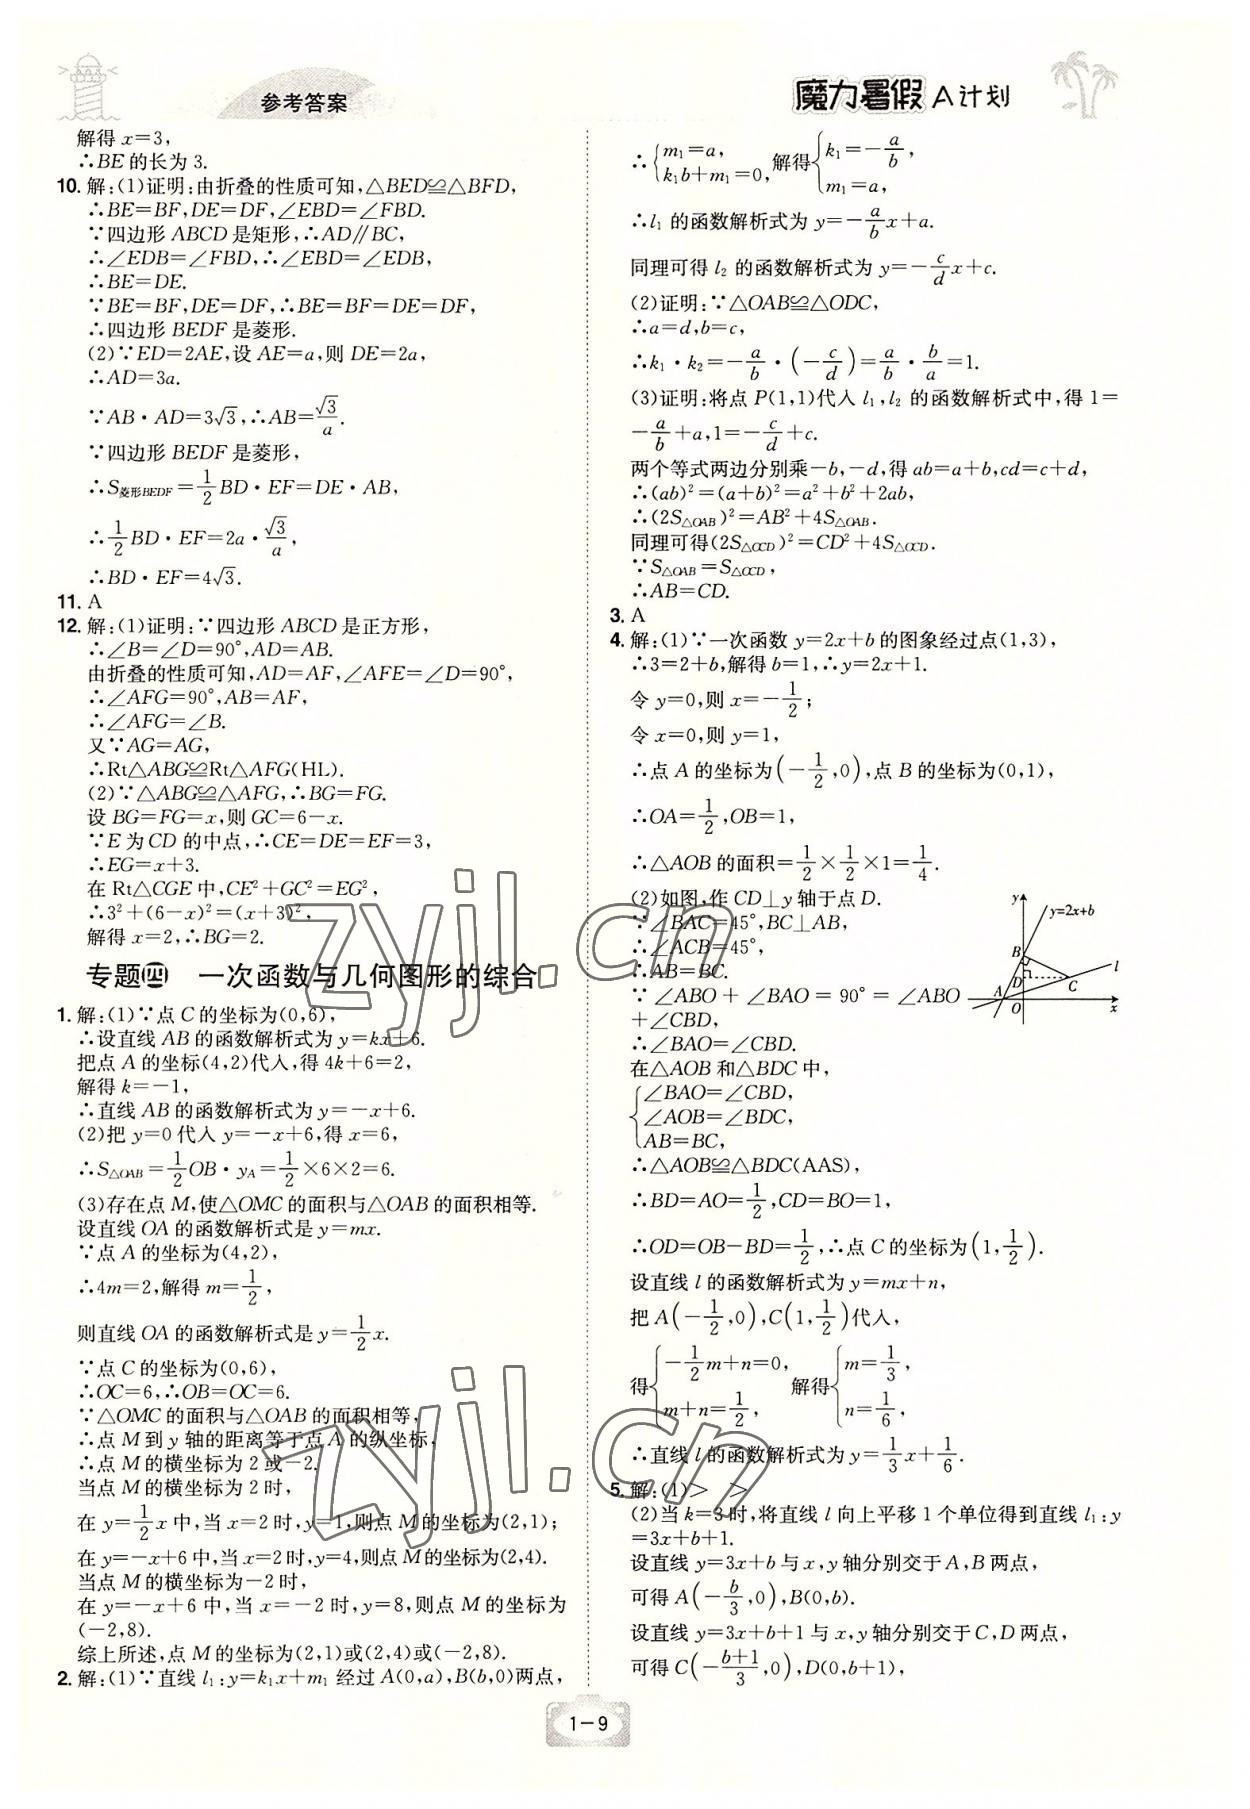 参考答案
魔力暑假 A计划
解得 x=3,
∴BE 的长为 3.
10. 解:(1)证明:由折叠的性质可知,△BED≌△BFD,
∴BE=BF,DE=DF,∠EBD=∠FBD.
∵四边形 ABCD 是矩形,∴AD∥BC,
∴∠EDB=∠FBD,∴∠EBD=∠EDB,
∴BE=DE.
∵BE=BF,DE=DF,∴BE=BF=DE=DF,
∴四边形 BEDF 是菱形.
(2)∵ED=2AE,设 AE=a,则 DE=2a,
∴AD=3a.
∵AB·AD=3√3,∴AB=√3/a.
∵四边形 BEDF 是菱形,
∴S菱形BEDF=1/2 BD·EF=DE·AB,
∴1/2 BD·EF=2a·√3/a,
∴BD·EF=4√3.
11. A
12. 解:(1)证明:∵四边形 ABCD 是正方形,
∴∠B=∠D=90°,AD=AB.
由折叠的性质可知,AD=AF,∠AFE=∠D=90°,
∴∠AFG=90°,AB=AF,
∴∠AFG=∠B.
又∵AG=AG,
∴Rt△ABG≌Rt△AFG(HL).
(2)∵△ABG≌△AFG,∴BG=FG.
设 BG=FG=x,则 GC=6-x.
∵E 为 CD 的中点,∴CE=DE=EF=3,
∴EG=x+3.
在 Rt△CGE 中,CE²+GC²=EG²,
∴3²+(6-x)²=(x+3)²,
解得 x=2,∴BG=2.
专题四 一次函数与几何图形的综合
1. 解:(1)∵点 C 的坐标为(0,6),
∴设直线 AB 的函数解析式为 y=kx+6.
把点 A 的坐标(4,2)代入,得 4k+6=2,
解得 k=-1,
∴直线 AB 的函数解析式为 y=-x+6.
(2)把 y=0 代入 y=-x+6,得 x=6,
∴S△OAB=1/2 OB·yA=1/2×6×2=6.
(3)存在点 M,使△OMC 的面积与△OAB 的面积相等.
设直线 OA 的函数解析式是 y=mx.
∵点 A 的坐标为(4,2),
∴4m=2,解得 m=1/2,
则直线 OA 的函数解析式是 y=1/2 x.
∵点 C 的坐标为(0,6),
∴OC=6,∴OB=OC=6.
∵△OMC 的面积与△OAB 的面积相等,
∴点 M 到 y 轴的距离等于点 A 的纵坐标,
∴点 M 的横坐标为 2 或-2.
当点 M 的横坐标为 2 时,
在 y=1/2 x 中,当 x=2 时,y=1,则点 M 的坐标为(2,1);
在 y=-x+6 中,当 x=2 时,y=4,则点 M 的坐标为(2,4).
当点 M 的横坐标为-2 时,
在 y=-x+6 中,当 x=-2 时,y=8,则点 M 的坐标为
(-2,8).
综上所述,点 M 的坐标为(2,1)或(2,4)或(-2,8).
2. 解:(1)∵直线 l₁:y=k₁x+m₁ 经过 A(0,a),B(b,0)两点,
∴{m₁=a, k₁b+m₁=0, 解得{k₁=-a/b, m₁=a,
∴l₁ 的函数解析式为 y=-a/b x+a.
同理可得 l₂ 的函数解析式为 y=-c/d x+c.
(2)证明:∵△OAB≌△ODC,
∴a=d,b=c,
∴k₁·k₂=-a/b·(-c/d)=a/b·b/a=1.
(3)证明:将点 P(1,1)代入 l₁,l₂ 的函数解析式中,得 1=
-a/b+a,1=-c/d+c.
两个等式两边分别乘-b,-d,得 ab=a+b,cd=c+d,
∴(ab)²=(a+b)²=a²+b²+2ab,
∴(2S△OAB)²=AB²+4S△OAB.
同理可得(2S△OCD)²=CD²+4S△OCD.
∵S△OAB=S△OCD,
∴AB=CD.
3. A
4. 解:(1)∵一次函数 y=2x+b 的图象经过点(1,3),
∴3=2+b,解得 b=1,∴y=2x+1.
令 y=0,则 x=-1/2;
令 x=0,则 y=1,
∴点 A 的坐标为(-1/2,0),点 B 的坐标为(0,1),
∴OA=1/2,OB=1,
∴△AOB 的面积=1/2×1/2×1=1/4.
(2)如图,作 CD⊥y 轴于点 D.
∵∠BAC=45°,BC⊥AB,
∴∠ACB=45°,
∴AB=BC.
∵∠ABO+∠BAO=90°=∠ABO
+∠CBD,
∴∠BAO=∠CBD.
y
y=2x+b
B
l
D
C
A
O
x
在△AOB 和△BDC 中,
{∠BAO=∠CBD,
∠AOB=∠BDC,
AB=BC,
∴△AOB≌△BDC(AAS),
∴BD=AO=1/2,CD=BO=1,
∴OD=OB-BD=1/2,∴点 C 的坐标为(1,1/2).
设直线 l 的函数解析式为 y=mx+n,
把 A(-1/2,0),C(1,1/2)代入,
得{-1/2 m+n=0, m+n=1/2, 解得{m=1/3, n=1/6,
∴直线 l 的函数解析式为 y=1/3 x+1/6.
5. 解:(1)> >
(2)当 k=3 时,将直线 l 向上平移 1 个单位得到直线 l₁:y
=3x+b+1.
设直线 y=3x+b 与 x,y 轴分别交于 A,B 两点,
可得 A(-b/3,0),B(0,b).
设直线 y=3x+b+1 与 x,y 轴分别交于 C,D 两点,
可得 C(-(b+1)/3,0),D(0,b+1),
1-9
zyjl.cn
zyjl.cn